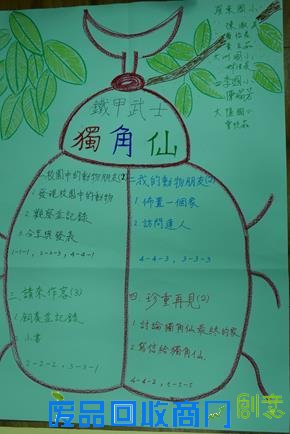 羅東國小
大同國小
四季國小
大隱國小
鐵甲武士
獨角仙
一.校園中的動物朋友(2)
1.發現校園中的動物
2.觀察並記錄
3.分享與發表
1-1-1, 2-2-3, 4-4-1
二.我的動物朋友(2)
1.佈置一個家
2.訪問達人
4-4-3, 3-3-3
三.請來作客(3)
1.飼養並記錄
2.小書
2-2-2, 3-3-1
四.珍重再見(2)
1.討論獨角仙最終的家
2.寫信給獨角仙
創意
废品回收商网